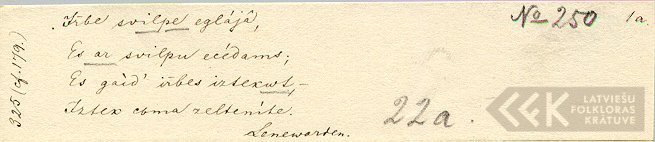 Irbe svilpe eglájâ,
Es ar svilpu ecédams;
Es gaid' irbes iztekut, –
Iztek coma zelteníte.
Lenewarden.
No 250
1a.
22a.
325 (cf. 179.)
LATVIEŠU
FOLKLORAS
KRĀTUVE